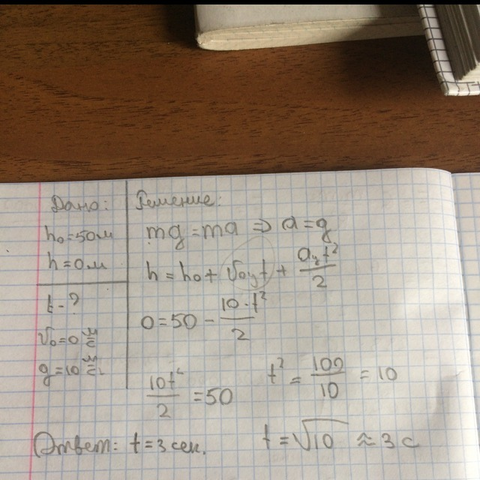 Дано:
h₀=50м
h=0м
t-?
v₀=0 м/с
g=10 м/с²
Решение:
mg=ma ⇒ a=g
h=h₀+v₀yt+ayt²/2
0=50-10·t²/2
10t²/2=50
t²=100/10=10
t=√10≈3 с
Ответ: t=3 сек.